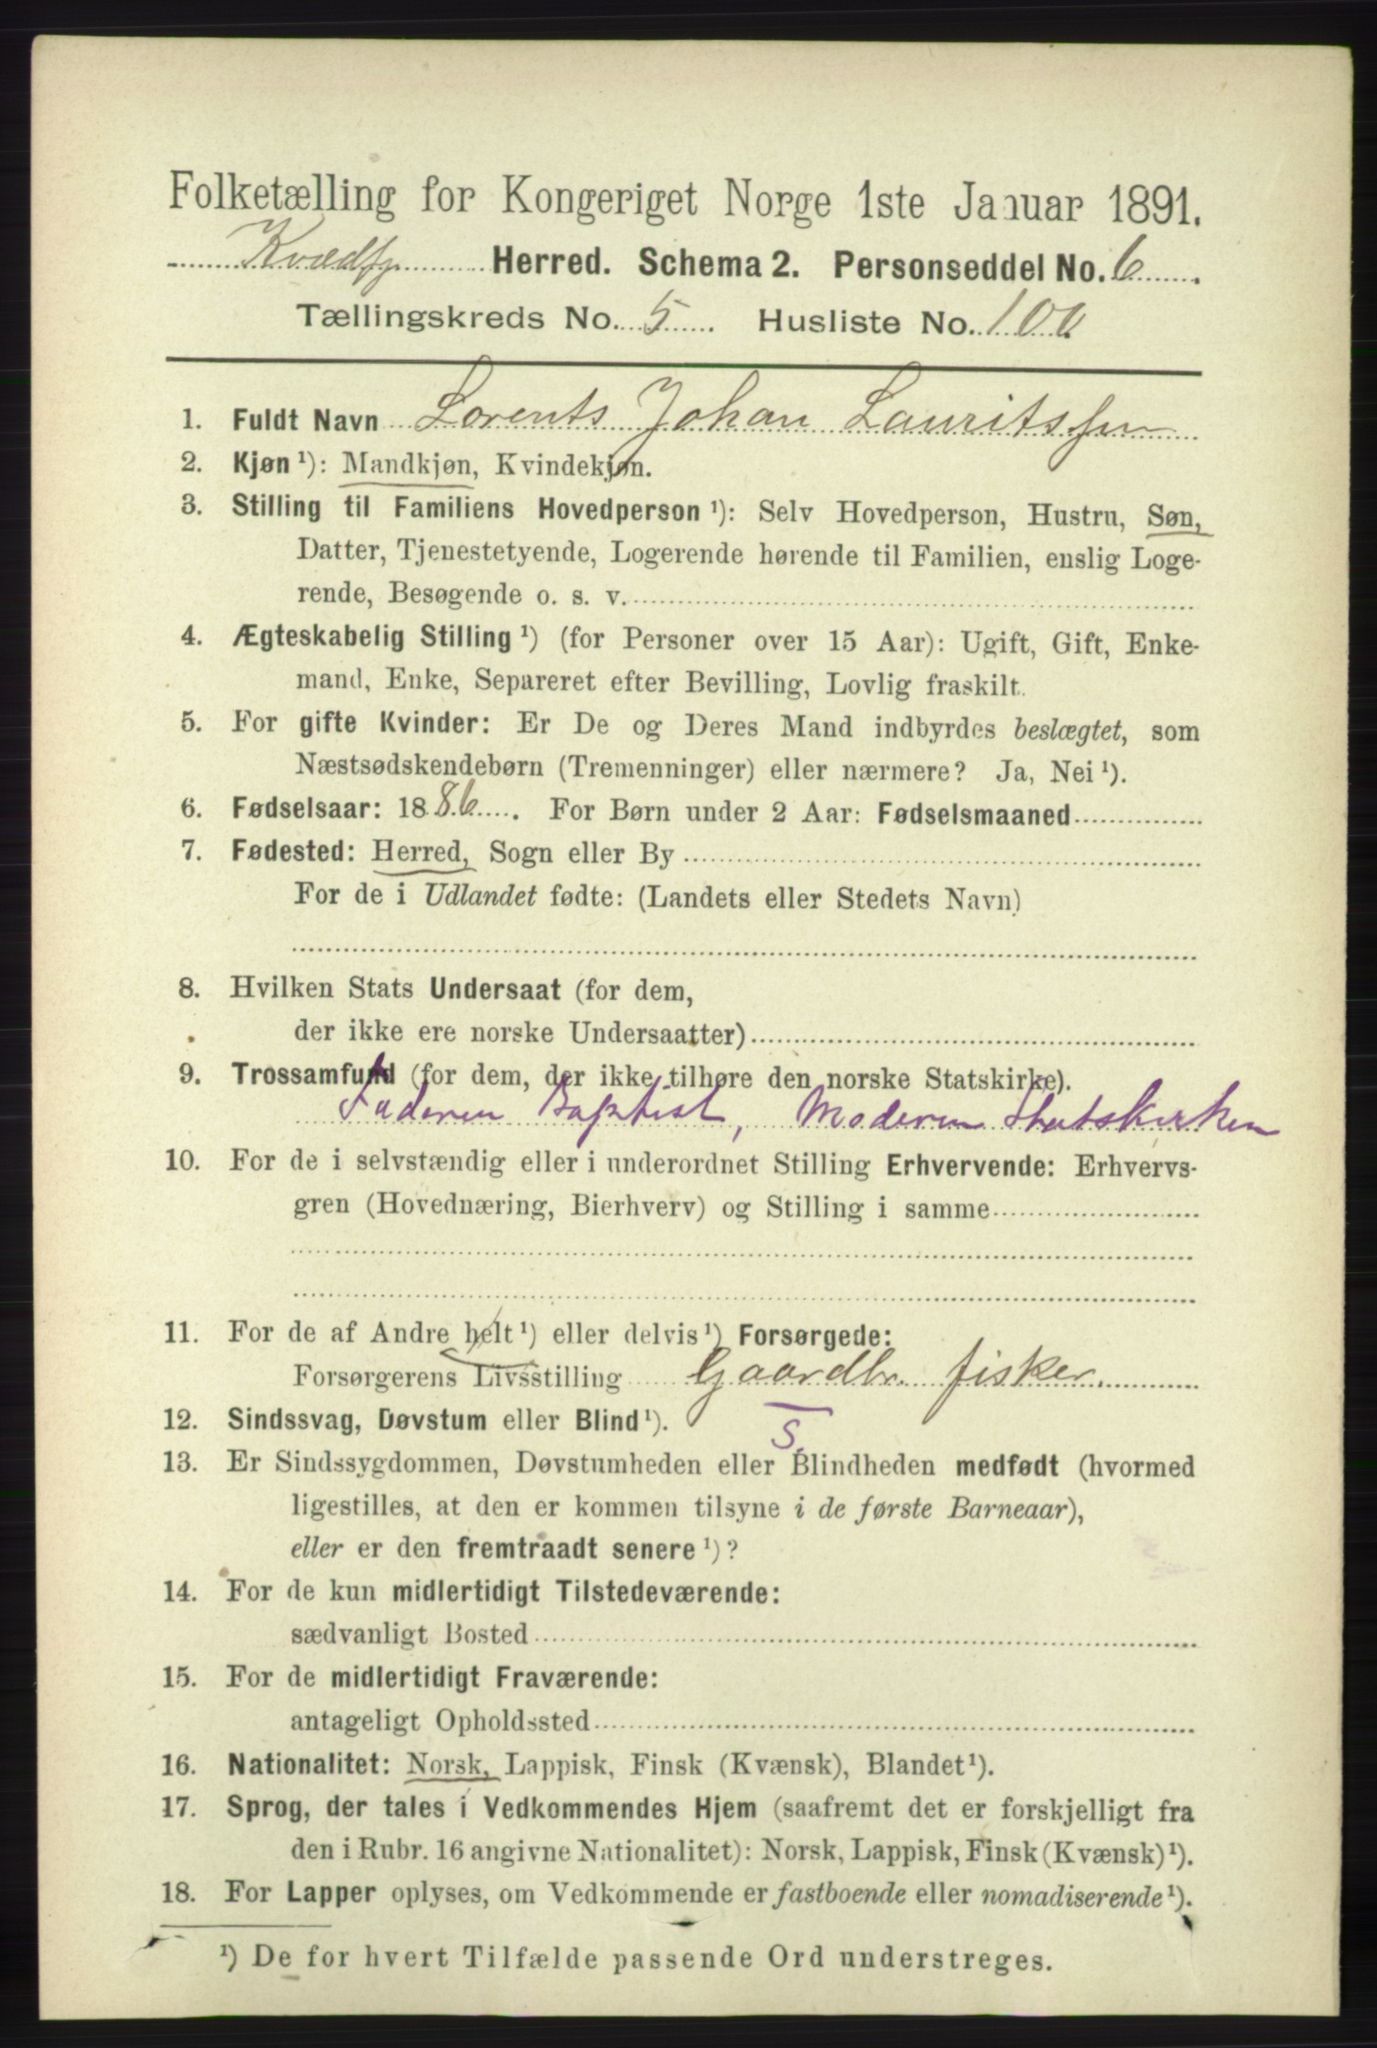 Folketælling for Kongeriget Norge 1ste Januar 1891.
Kvædfj. Herred. Schema 2. Personseddel No. 6.
Tællingskreds No. 5. Husliste No. 100
1. Fuldt Navn Lorents Johan Lauritssen
2. Kjøn ¹): Mandkjøn, Kvindekjøn.
3. Stilling til Familiens Hovedperson ¹): Selv Hovedperson, Hustru, Søn,
Datter, Tjenestetyende, Logerende hørende til Familien, enslig Loge-
rende, Besøgende o. s. v.
4. Ægteskabelig Stilling ¹) (for Personer over 15 Aar): Ugift, Gift, Enke-
mand, Enke, Separeret efter Bevilling, Lovlig fraskilt.
5. For gifte Kvinder: Er De og Deres Mand indbyrdes beslægtet, som
Næstsødskendebørn (Tremenninger) eller nærmere? Ja, Nei ¹).
6. Fødselsaar: 1886. For Børn under 2 Aar: Fødselsmaaned
7. Fødested: Herred, Sogn eller By
For de i Udlandet fødte: (Landets eller Stedets Navn)
8. Hvilken Stats Undersaat (for dem,
der ikke ere norske Undersaatter)
9. Trossamfund (for dem, der ikke tilhøre den norske Statskirke).
Faderen Baptist, Moderen Statskirken
10. For de i selvstændig eller i underordnet Stilling Erhvervende: Erhvervs-
gren (Hovednæring, Bierhverv) og Stilling i samme
11. For de af Andre helt ¹) eller delvis ¹) Forsørgede:
Forsørgerens Livsstilling Gaardbr. fisker.
12. Sindssvag, Døvstum eller Blind ¹). S.
13. Er Sindssygdommen, Døvstumheden eller Blindheden medfødt (hvormed
ligestilles, at den er kommen tilsyne i de første Barneaar),
eller er den fremtraadt senere ¹)?
14. For de kun midlertidigt Tilstedeværende:
sædvanligt Bosted
15. For de midlertidigt Fraværende:
antageligt Opholdssted
16. Nationalitet: Norsk, Lappisk, Finsk (Kvænsk), Blandet ¹).
17. Sprog, der tales i Vedkommendes Hjem (saafremt det er forskjelligt fra
den i Rubr. 16 angivne Nationalitet): Norsk, Lappisk, Finsk (Kvænsk) ¹).
18. For Lapper oplyses, om Vedkommende er fastboende eller nomadiserende ¹).
¹) De for hvert Tilfælde passende Ord understreges.